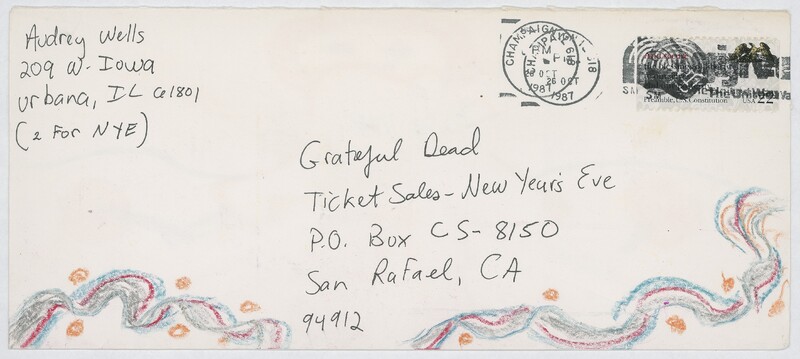 Audrey Wells
209 W. Iowa
Urbana, IL 61801
(2 For NYE)
CHAMPAIGN
PM
26 OCT
1987
26 OCT
1987
Preamble, U.S. Constitution
USA 22
Grateful Dead
Ticket Sales - New Year's Eve
P.O. Box CS-8150
San Rafael, CA
94912